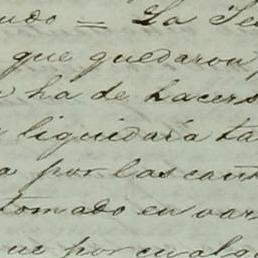 udo = La Te
que quedaron
ha de hacers
liquidará ta
por las cant
tomado en var
ue por cualq